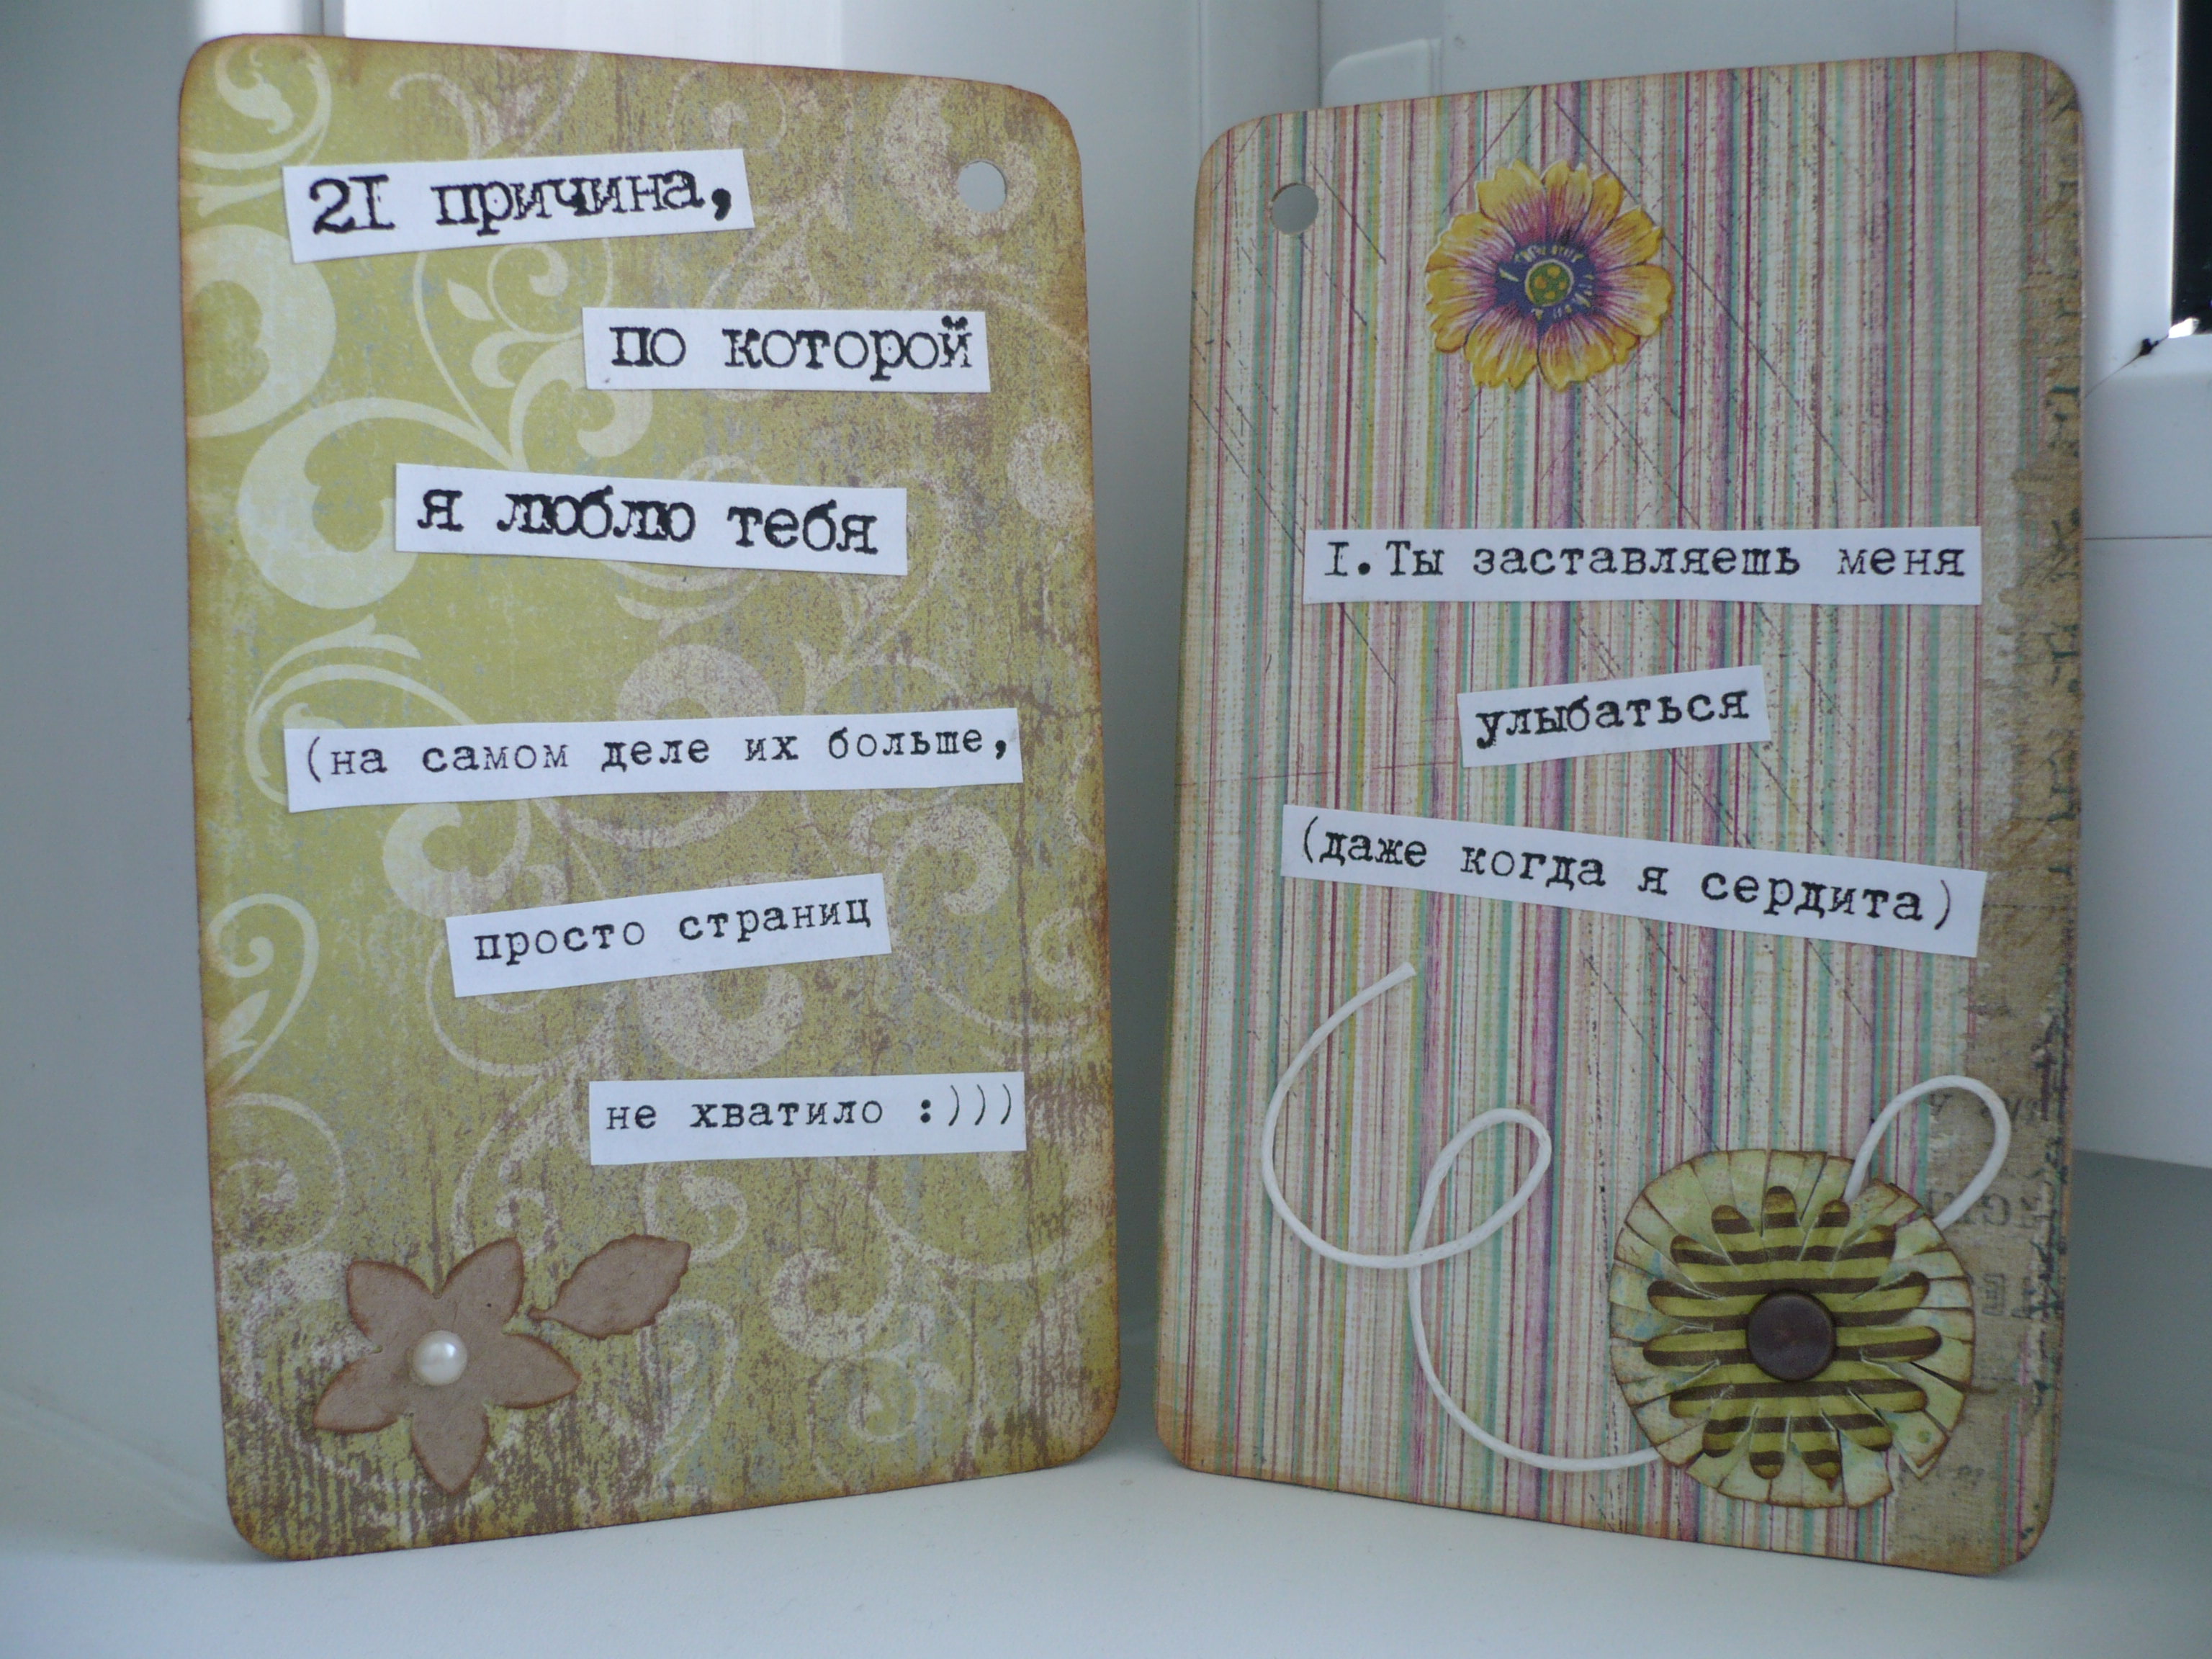 21 причина,
по которой
я люблю тебя
(на самом деле их больше,
просто страниц
не хватило :)))
1.Ты заставляешь меня
улыбаться
(даже когда я сердита)